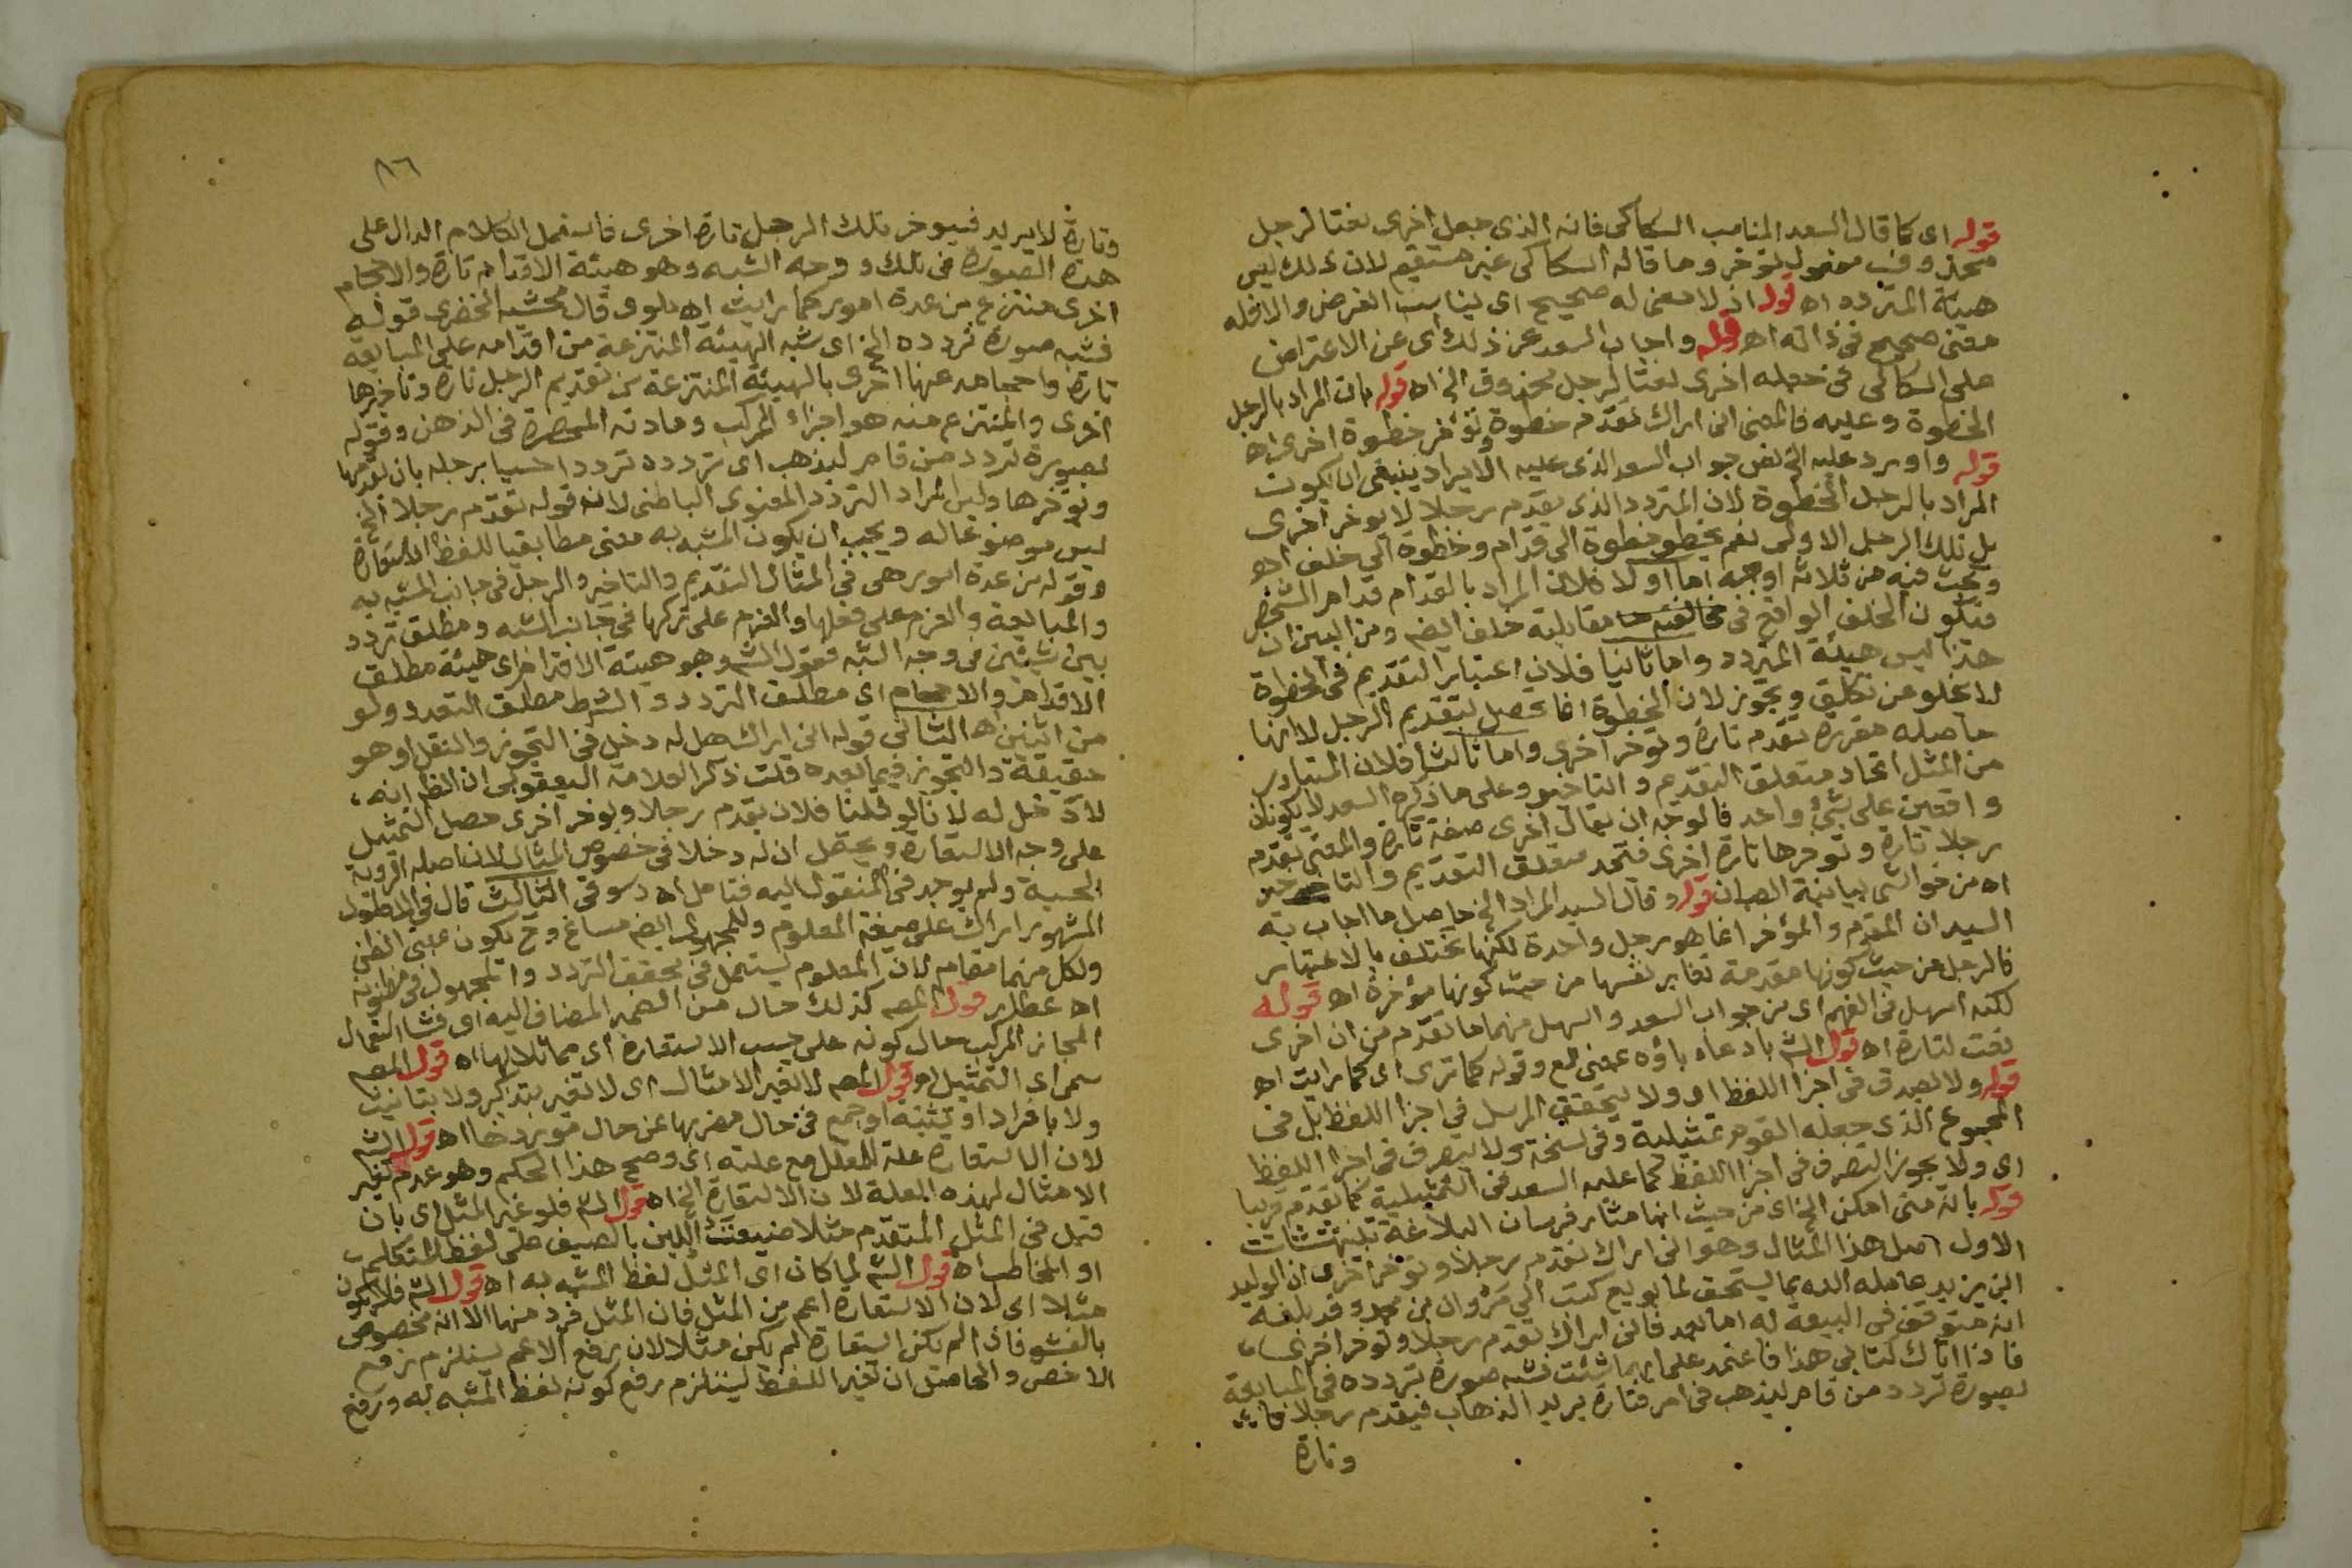 قوله اى كما قال السعد المناسب السكاكى فانه الذى جعل اخرى نعتا لرجل
محذوف مفعول تؤخر وما قاله السكاكى غير مستقيم لان ذلك ليس
هيئة المتردد اه قوله اذ لا معنى له صحيح اى يناسب الغرض والا فله
معنى صحيح فى ذاته اه قوله واجاب السعد عن ذلك اى عن الاعتراض
على السكاكى فى جعله اخرى نعتا لرجل محذوف الخ اه قوله بان المراد بالرجل
الخطوة وعليه فالمعنى انى اراك تقدم خطوة وتؤخر خطوة اخرى اه
قوله واورد عليه الخ نص جواب السعد الذى عليه الايراد ينبغى ان يكون
المراد بالرجل الخطوة لان المتردد الذى يقدم رجلا لا يوخر اخرى
بل تلك الرجل الاولى نعم يخطو خطوة الى قدام وخطوة الى خلف اه
وبحث فيه من ثلاثة اوجه اما اولا فلان المراد بالقدام قدام الشخص
فتكون الخلف الواقع فى مقابلية خلف ايضه ومن البين ان
هذا ليس هيئة المتردد واما ثانيا فلان اعتبار التقديم فى الخطوة
لا يخلو عن تكلف ويجوز لان الخطوة انما تحصل بتقديم الرجل لا انها
حاصله مقررة تقدم تارة وتوخر اخرى واما ثالثا فلان المتبادر
من المثل اتحاد متعلق التقديم والتاخير وعلى ما ذكره السعد لا يكونان
واقعين على شئ واحد فالوجه ان يقال اخرى صفة تارة والمعنى تقدم
رجلا تارة وتوخرها تارة اخرى فتحد متعلق التقديم والتاخير
اه من حواشى بيانية الصبان قوله وقال السيد المراد الخ حاصل ما اجاب به
السيد ان المقدم والمؤخر انما هو رجل واحدة لكنها تختلف بالاعتبار
فالرجل من حيث كونها مقدمة تغاير نفسها من حيث كونها مؤخرة اه قوله
لكنه اسهل فى الفهم اى من جواب السعد واسهل منهما ما تقدم من ان اخرى
نعت لتارة اه قول الش بادعاه باؤه بمعنى مع وقوله كما ترى اى كما رايت اه
قوله ولا تصدق فى اجزا اللفظ او ولا يتحقق المرسل فى اجزا اللفظ بل فى
المجموع الذى جعله القوم تمثيلية وفى نسخة ولا تصرف فى اجزا اللفظ
اى ولا يجوز التصرف فى اجزا اللفظ كما عليه السعد فى التمثيلية كما تقدم قريبا
قوله بانه متى امكن الخ اى من حيث انها مثار فرسان البلاغة
الاول اصل هذا المثال وهو انى اراك تقدم رجلا وتوخر اخرى ان الوليد
ابن يزيد عامله الله بما يستحق لما بويع كتب الى مروان بن محمد وقد بلغه
انه متوقف فى البيعة له اما بعد فانى اراك تقدم رجلا وتوخر اخرى
فاذا اتاك كتابى هذا فاعتمد على ايهما شئت فشبه صورة تردده فى المبايعة
بصورة تردد من قام ليذهب فى امر فتارة يريد الذهاب فيقدم رجلا
وتارة
٨٦
وتارة لا يريد فيوخر تلك الرجل تارة اخرى فاستعمل الكلام الدال على
هذه الصورة فى تلك ووجه الشبه وهو هيئة الاقدام تارة والاحجام
اخرى منتزع من عدة امور كما رايت اه ملوى قال محشيه الخضرى قوله
فشبه صورة تردده الخ اى شبه الهيئة المنتزعة من اقدامه على المبايعة
تارة واحجامه عنها اخرى بالهيئة المنتزعة من تقديم الرجل تارة وتاخيرها
اخرى والمنتزع منه هو اجزاء المركب ومادته المحضرة فى الذهن وقوله
بصورة تردد من قام ليذهب اى تردده تردد احسيا برجله بان يقدمها
ويؤخرها وليس المراد التردد المعنوى الباطنى لانه قوله تقدم رجلا الخ
ليس موضوعا له ويجب ان يكون المشبه به معنى مطابقيا للفظ الاستعارة
وقوله من عدة امور هى فى المثال التقديم والتاخير والرجل فى جانب المشبه به
والمبايعة والعزم على فعلها والعزم على تركها فى جانب الشبه ومطلق تردد
بين شيئين فى وجه الشبه فقول الش وهو هيئة الاقدام اى هيئة مطلق
الاقدام والاحجام اى مطلق التردد والشرط مطلق التعدد ولو
من اثنين اه الثانى قوله انى اراك هل له دخل فى التجوز والنقل او هو
حقيقة والتجوز فيما بعده قلت ذكر العلامة اليعقوبى ان الظ انه
لا دخل له لانا لو قلنا فلان يقدم رجلا ويوخر اخرى حصل التمثيل
على وجه الاستعارة ويحتمل ان له دخلا فى خصوص المثال لان اصله الروية
الحسية ولم يوجد فى المنقول اليه فتامل اه دسوقى الثالث قال فى المطول
المشهور اراك على صيغة المعلوم وللمجهول ايضه مساغ وح يكون بمعنى الظن
ولكل منهما مقام لان المعلوم يستعمل فى تحقق التردد والمجهول فى مظنونه
اه عطار قول المص كذلك حال من الضمير المضاف اليه اى فشا استعمال
المجاز المركب حال كونه على حسب الاستعارة اى مماثلا لها اه قول المص
سمى اى التمثيل او قول المص لا تغير الامثال اى لا تغير بتذكير ولا بتانيث
ولا بافراد او تثنية او جمع فى حال مضربها عن حال موردها اه قول الش
لان الاستعارة علة للمعلل مع علته اى وصح هذا الحكم وهو عدم تغير
الامثال لهذه العلة لان الاستعارة الخ اه قول الش فلو غير المثل اى بان
قيل فى المثل المتقدم مثلا ضيعت اللبن بالصيف على لفظ المتكلم
او المخاطب اه قول الش لما كان اى المثل لفظ المشبه به اه قول الش فلا يكون
مثلا اى لان الاستعارة اعم من المثل فان المثل فرد منها الا انه مخصوص
بالفشو فاذا لم تكن استعارة لم يكن مثلا لان رفع الاعم يستلزم رفع
الاخص والحاصل ان تغير اللفظ يستلزم رفع كونه لفظ المشبه به ورفع